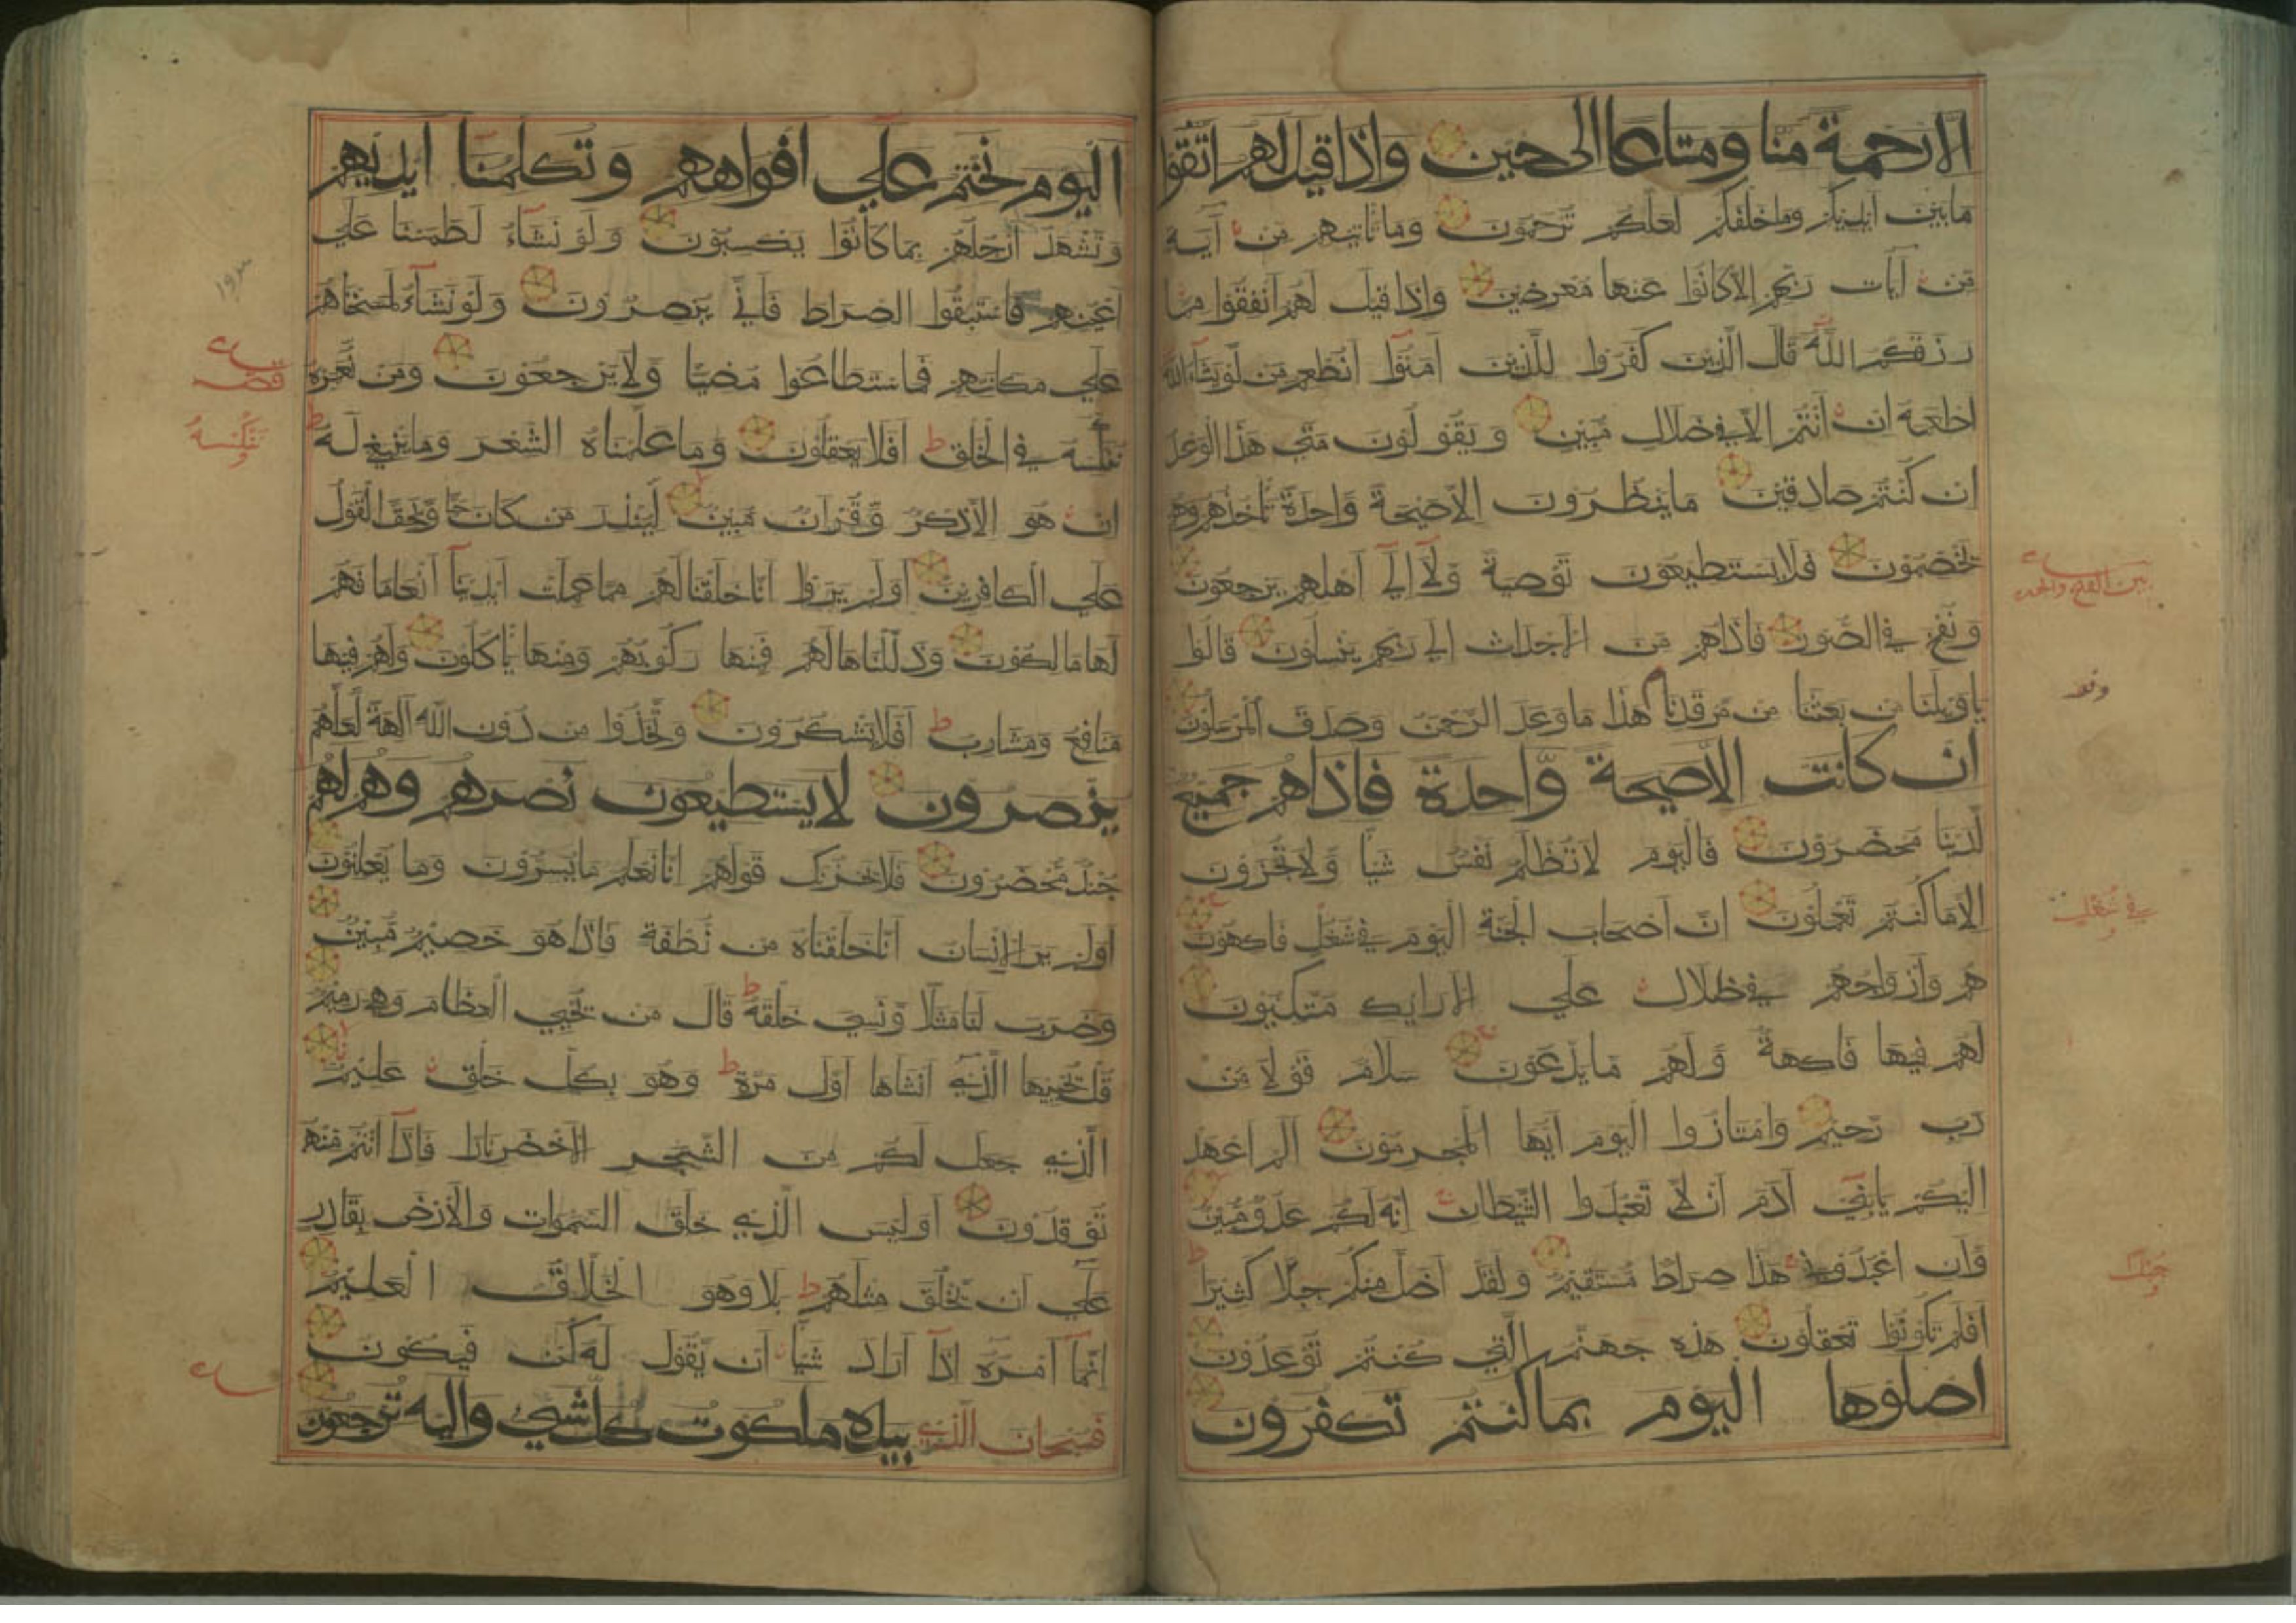 الا رحمة منا ومتاعا الى حين واذا قيل لهم اتقوا
ما بين ايديكم وما خلفكم لعلكم ترحمون وما تاتيهم من آية
من آيات ربهم الا كانوا عنها معرضين واذا قيل لهم انفقوا مما
رزقكم الله قال الذين كفروا للذين آمنوا انطعم من لو يشاء الله
اطعمه ان انتم الا في ضلال مبين ويقولون متى هذا الوعد
ان كنتم صادقين ما ينظرون الا صيحة واحدة تاخذهم وهم
يخصمون فلا يستطيعون توصية ولا الى اهلهم يرجعون
ونفخ في الصور فاذا هم من الاجداث الى ربهم ينسلون قالوا
يا ويلنا من بعثنا من مرقدنا هذا ما وعد الرحمن وصدق المرسلون
ان كانت الا صيحة واحدة فاذا هم جميع
لدينا محضرون فاليوم لا تظلم نفس شيا ولا تجزون
الا ما كنتم تعملون ان اصحاب الجنة اليوم في شغل فاكهون
هم وازواجهم في ظلال علي الارايك متكيون
لهم فيها فاكهة ولهم ما يدعون سلام قولا من
رب رحيم وامتازوا اليوم ايها المجرمون الم اعهد
اليكم يا بني آدم ان لا تعبدوا الشيطان انه لكم عدو مبين
وان اعبدوني هذا صراط مستقيم ولقد اضل منكم جبلا كثيرا
افلم تكونوا تعقلون هذه جهنم التي كنتم توعدون
اصلوها اليوم بما كنتم تكفرون
في شغل
اليوم نختم علي افواههم وتكلمنا ايديهم
وتشهد ارجلهم بما كانوا يكسبون ولو نشاء لطمسنا علي
اعينهم فاستبقوا الصراط فاني يبصرون ولو نشاء لمسخناهم
علي مكانتهم فما استطاعوا مضيا ولا يرجعون ومن نعمره
ننكسه في الخلق افلا يعقلون وما علمناه الشعر وما ينبغي له
ان هو الا ذكر وقرآن مبين لينذر من كان حيا ويحق القول
علي الكافرين اولم يروا انا خلقنا لهم مما عملت ايدينا انعاما فهم
لها مالكون وذللناها لهم فمنها ركوبهم ومنها ياكلون ولهم فيها
منافع ومشارب افلا يشكرون واتخذوا من دون الله آلهة لعلهم
ينصرون لا يستطيعون نصرهم وهم لهم
جند محضرون فلا يحزنك قولهم انا نعلم ما يسرون وما يعلنون
اولم ير الانسان انا خلقناه من نطفة فاذا هو خصيم مبين
وضرب لنا مثلا ونسي خلقه قال من يحيي العظام وهي رميم
قل يحييها الذي انشاها اول مرة وهو بكل خلق عليم
الذي جعل لكم من الشجر الاخضر نارا فاذا انتم منه
توقدون اوليس الذي خلق السموات والارض بقادر
علي ان يخلق مثلهم بلا وهو الخلاق العليم
انما امره اذا اراد شيا ان يقول له كن فيكون
فسبحان الذي بيده ملكوت كل شي واليه ترجعون
ننكسه